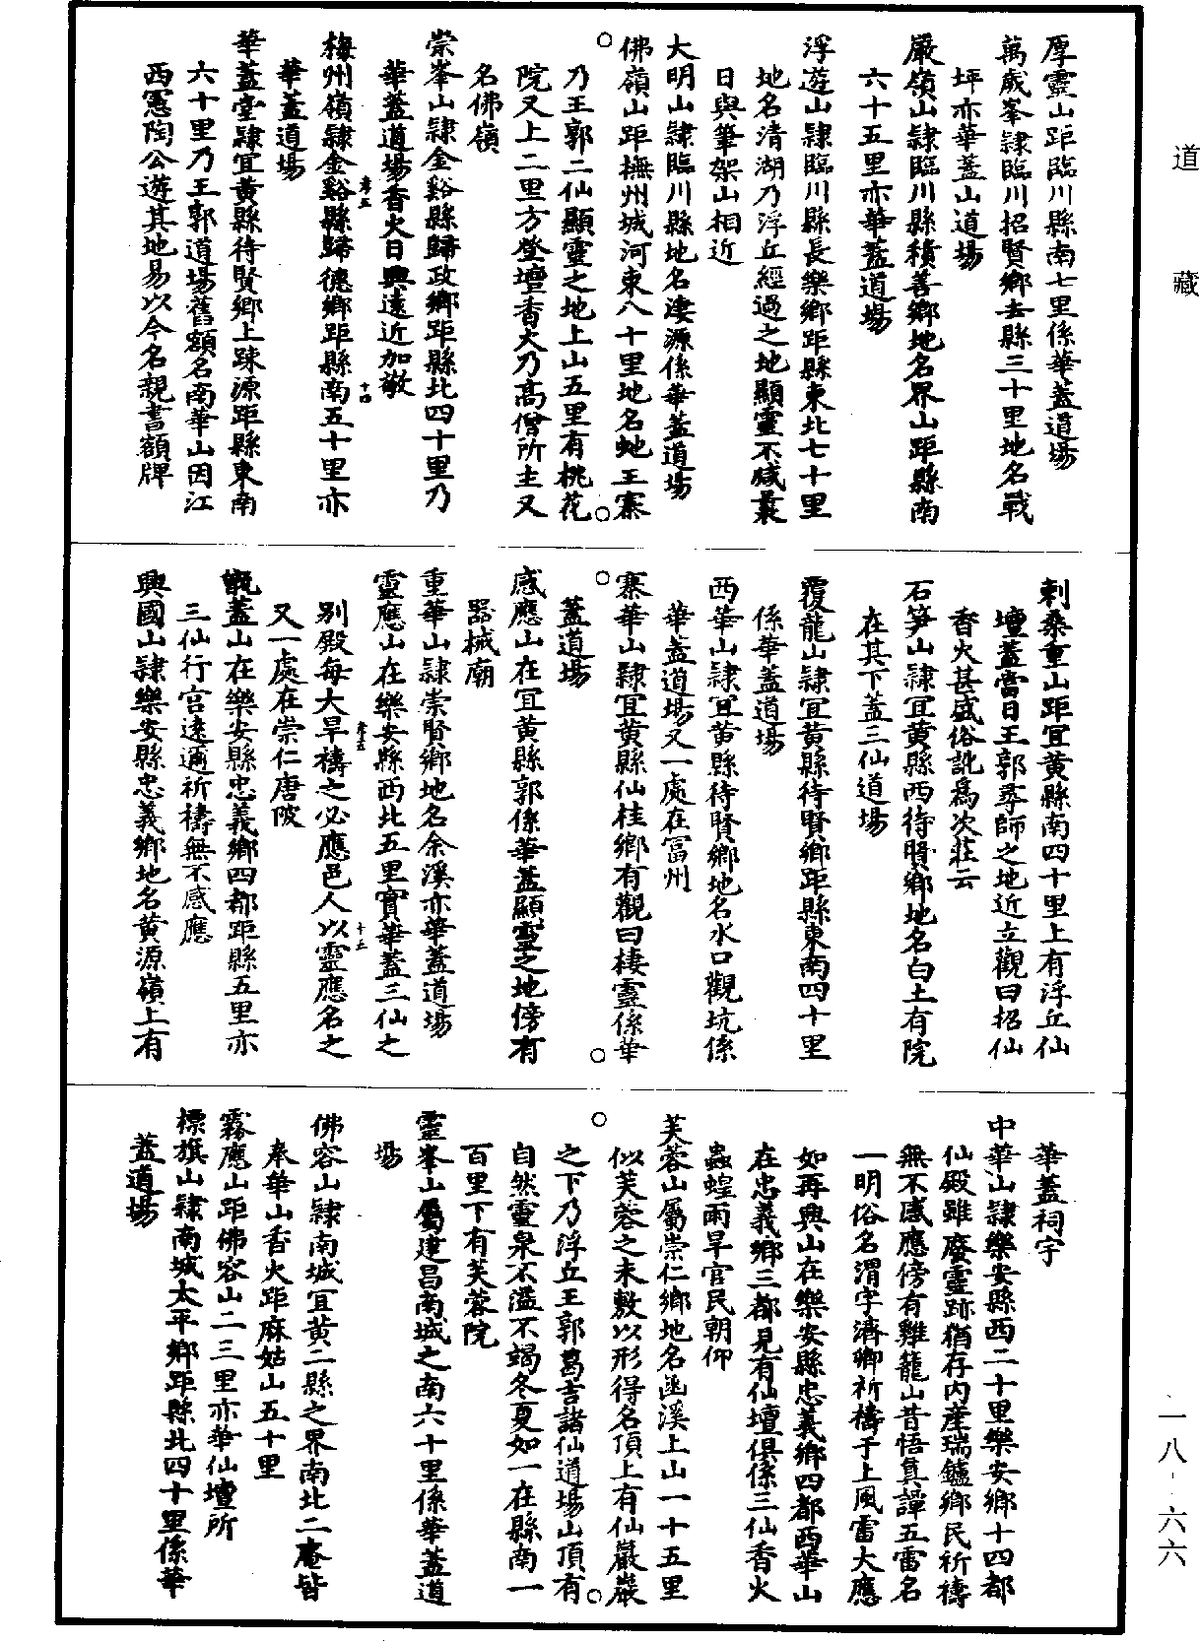 厚靈山距臨川縣南七里係華蓋道場
萬歲峯隸臨川招賢鄉去縣三十里地名戰
坪亦華蓋山道場
嚴嶺山隸臨川縣積善鄉地名界山距縣南
六十五里亦華蓋道場
浮遊山隸臨川縣長樂鄉距縣東北七十里
地名清湖乃浮丘經過之地顯靈不減蓑
日與筆架山相近
大明山隸臨川縣地名淒源係華蓋道場
佛嶺山距撫州城河東八十里地名虵王寨
乃王郭二仙顯靈之地上山五里有桃花
院又上二里方登壇香火乃高僧所主又
名佛嶺
崇峯山隸金谿縣歸政鄉距縣北四十里乃
華蓋道場香火日興遠近加敬
梅州嶺隸金谿縣歸德鄉距縣南五十里亦
華蓋道場
華蓋堂隸宜黃縣待賢鄉上踈源距縣東南
六十里乃王郭道場舊額名南華山因江
西憲陶公遊其地易以今名親書額牌
刺桑重山距宜黃縣南四十里上有浮丘仙
壇蓋當日王郭尋師之地近立觀曰招仙
香火甚盛俗訛爲次莊云
石笋山隸宜黃縣西待賢鄉地名白土有院
在其下蓋三仙道場
覆龍山隸宜黃縣待賢鄉距縣東南四十里
係華蓋道場
西華山隸宜黃縣待賢鄉地名水口觀坑係
華蓋道場又一處在富州
寨華山隸宜黃縣仙桂鄉有觀曰棲靈係華
蓋道場
感應山在宜黃縣郭係華蓋顯靈之地傍有
器械廟
重華山隸崇賢鄉地名余溪亦華蓋道場
靈應山在樂安縣西北五里實華蓋三仙之
別殿每大旱禱之必應邑人以靈應名之
又一處在崇仁唐陂
甑蓋山在樂安縣忠義鄉四都距縣五里亦
三仙行宮遠邇祈禱無不感應
興國山隸樂安縣忠義鄉地名黃源嶺上有
華蓋祠宇
中華山隸樂安縣西二十里樂安鄉十四都
仙殿雖廢靈跡猶存內產瑞鑪鄉民祈禱
無不感應傍有雞籠山昔悟真譚五雷名
一明俗名渭字濟卿祈禱于上風雷大應
如再興山在樂安縣忠義鄉四都西華山
在忠義鄉三都見有仙壇俱係三仙香火
蟲蝗雨旱官民朝仰
芙蓉山屬崇仁鄉地名凾溪上山一十五里
似芙蓉之未敷以形得名頂上有仙巖巖
之下乃浮丘王郭葛吉諸仙道場山頂有
自然靈泉不溢不竭冬夏如一在縣南一
百里下有芙蓉院
靈峯山屬建昌南城之南六十里係華蓋道
場
佛容山隸南城宜黃二縣之界南北二庵皆
奉華山香火距麻姑山五十里
霧應山距佛容山二三里亦華仙壇所
標旗山隸南城太平鄉距縣北四十里係華
蓋道場
道藏
一八-六六